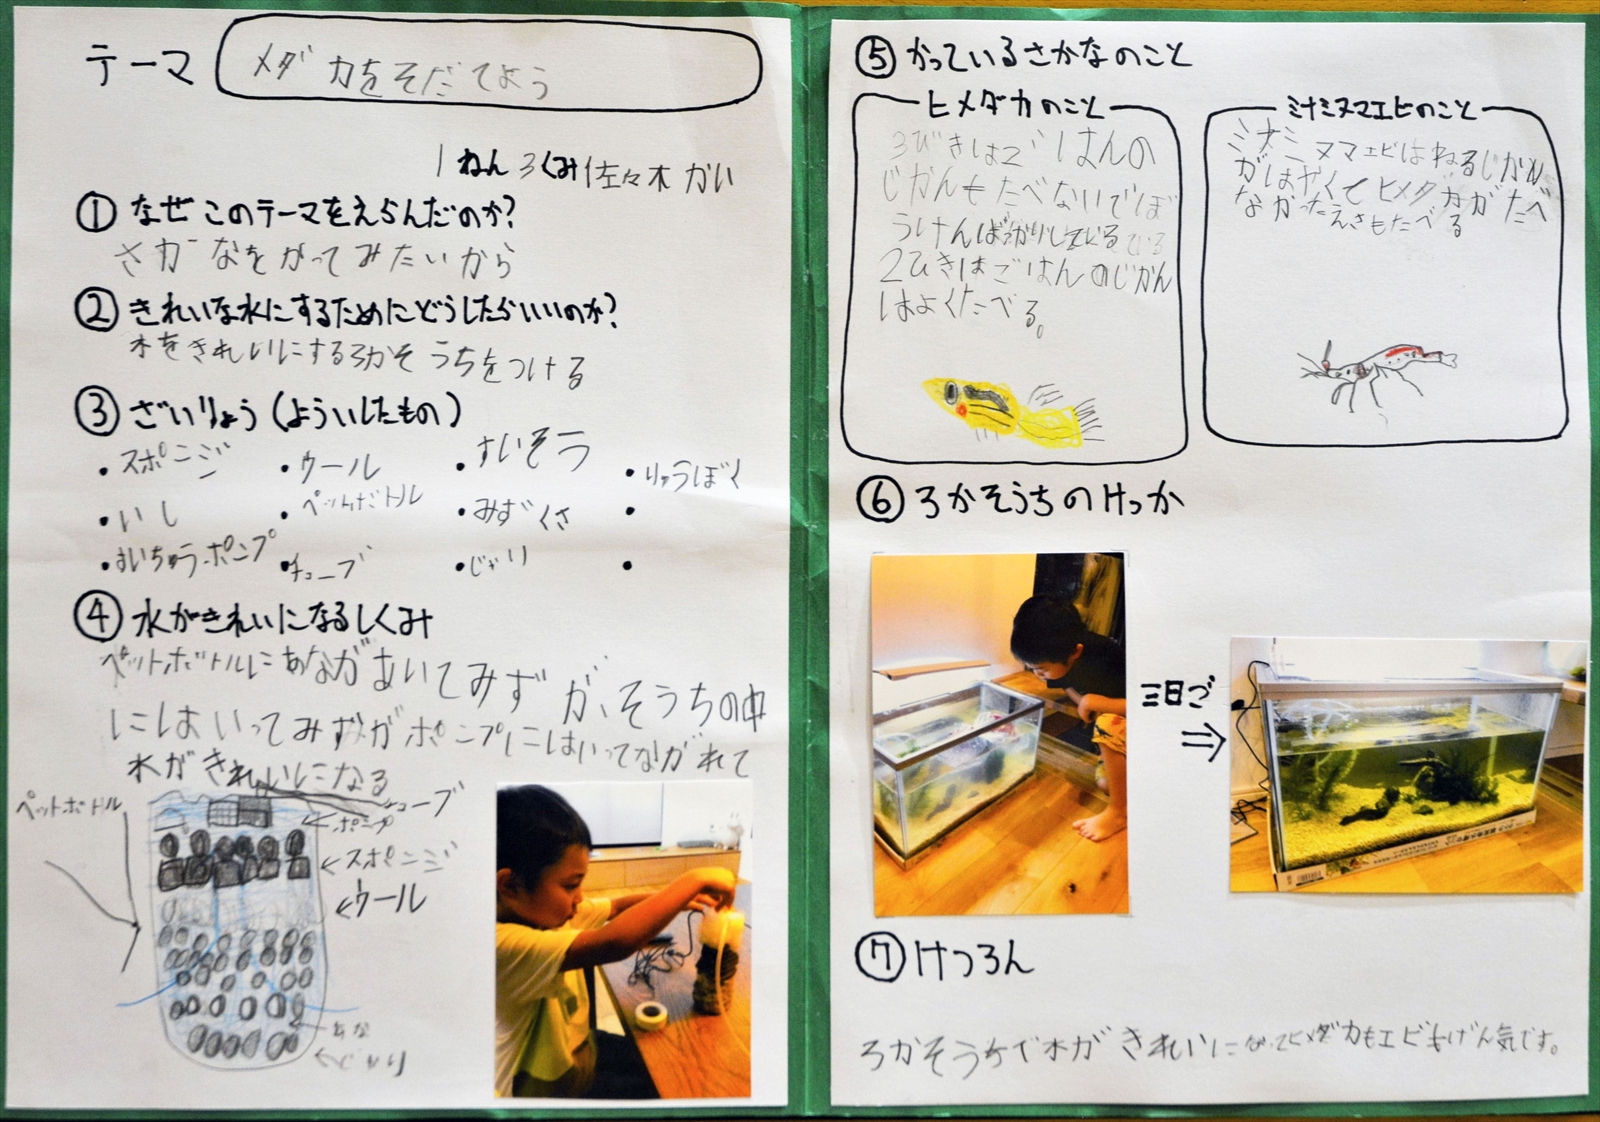 テーマ
メダカをそだてよう
1ねん3くみ佐々木かい
①なぜこのテーマをえらんだのか?
さかなをかってみたいから
②きれいな水にするためにどうしたらいいのか?
水をきれいにするろかそうちをつける
③ざいりょう(よういしたもの)
・スポンジ ・ウール ・すいそう ・りゅうぼく
・いし ・ペットボトル ・みずくさ ・
・すいちゅうポンプ ・チューブ ・じゃり ・
④水がきれいになるしくみ
ペットボトルにあながあいてみずが、そうちの中
にはいってみずがポンプにはいってながれて
水がきれいになる
ペットボトル
チューブ
ポンプ
スポンジ
ウール
あな
じゃり
⑤かっているさかなのこと
ヒメダカのこと
3びきはごはんの
じかんもたべないでぼ
うけんばかりしている
2ひきはごはんのじかん
はよくたべる。
ミナミヌマエビのこと
ミナミヌマエビはねるじかん
がはやくてヒメダカがたべ
なかったえさもたべる
⑥ろかそうちのけっか
三日ご
⇒
⑦けつろん
ろかそうちで水がきれいになってヒメダカもエビもげん気です。